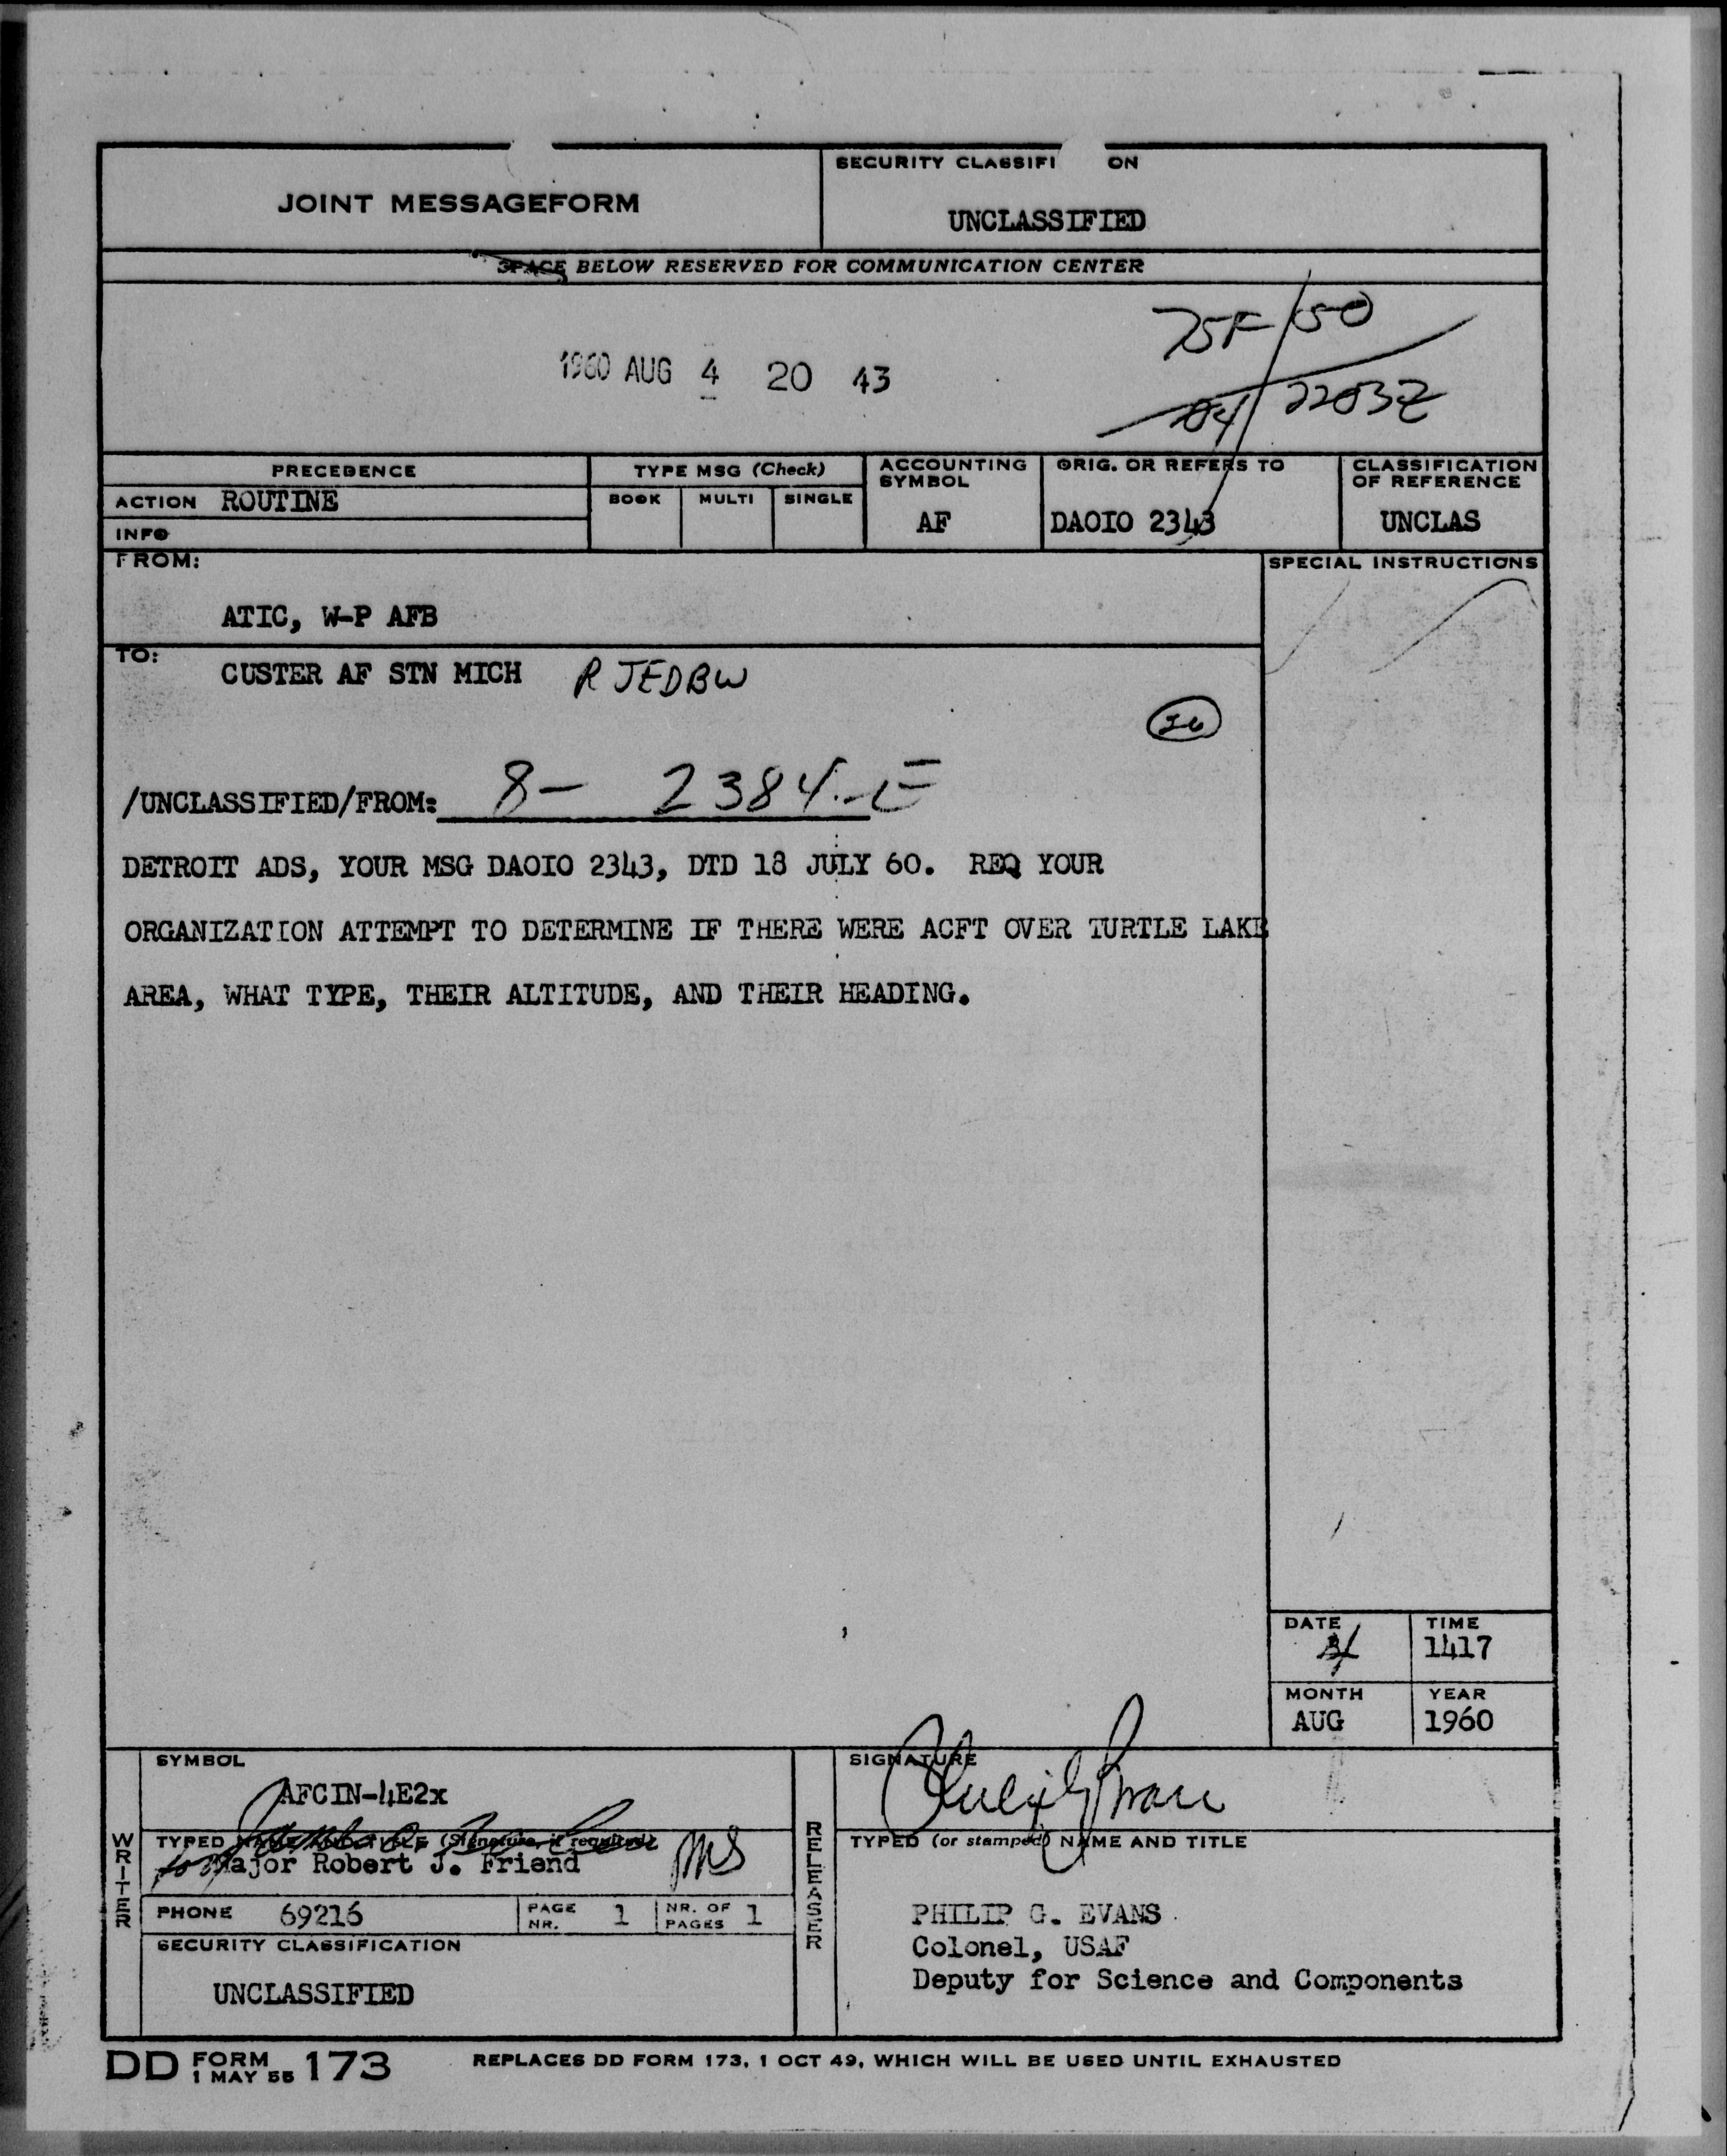 SECURITY CLASSIFI ON
JOINT MESSAGEFORM
UNCLASSIFIED
SPACE BELOW RESERVED FOR COMMUNICATION CENTER
1960 AUG 4 20 43
04/2203Z
PRECEDENCE
TYPE MSG (Check)
ACCOUNTING SYMBOL
ORIG. OR REFERS TO
CLASSIFICATION OF REFERENCE
ACTION ROUTINE
BOOK MULTI SINGLE
AF
DAOIO 2343
UNCLAS
INFO
FROM:
SPECIAL INSTRUCTIONS
ATIC, W-P AFB
TO:
CUSTER AF STN MICH RJEDBW
/UNCLASSIFIED/FROM: 8- 2384-E
DETROIT ADS, YOUR MSG DAOIO 2343, DTD 18 JULY 60. REQ YOUR
ORGANIZATION ATTEMPT TO DETERMINE IF THERE WERE ACFT OVER TURTLE LAKE
AREA, WHAT TYPE, THEIR ALTITUDE, AND THEIR HEADING.
DATE TIME
4 1417
MONTH YEAR
AUG 1960
SYMBOL
AFCIN-4E2x
SIGNATURE
WRITER
TYPED NAME AND TITLE (Signature, if required)
for Major Robert J. Friend
PHONE 69216
PAGE NR. 1
NR. OF PAGES 1
SECURITY CLASSIFICATION
UNCLASSIFIED
RELEASER
TYPED (or stamped) NAME AND TITLE
PHILIP G. EVANS
Colonel, USAF
Deputy for Science and Components
DD FORM 1 MAY 55 173
REPLACES DD FORM 173, 1 OCT 49, WHICH WILL BE USED UNTIL EXHAUSTED